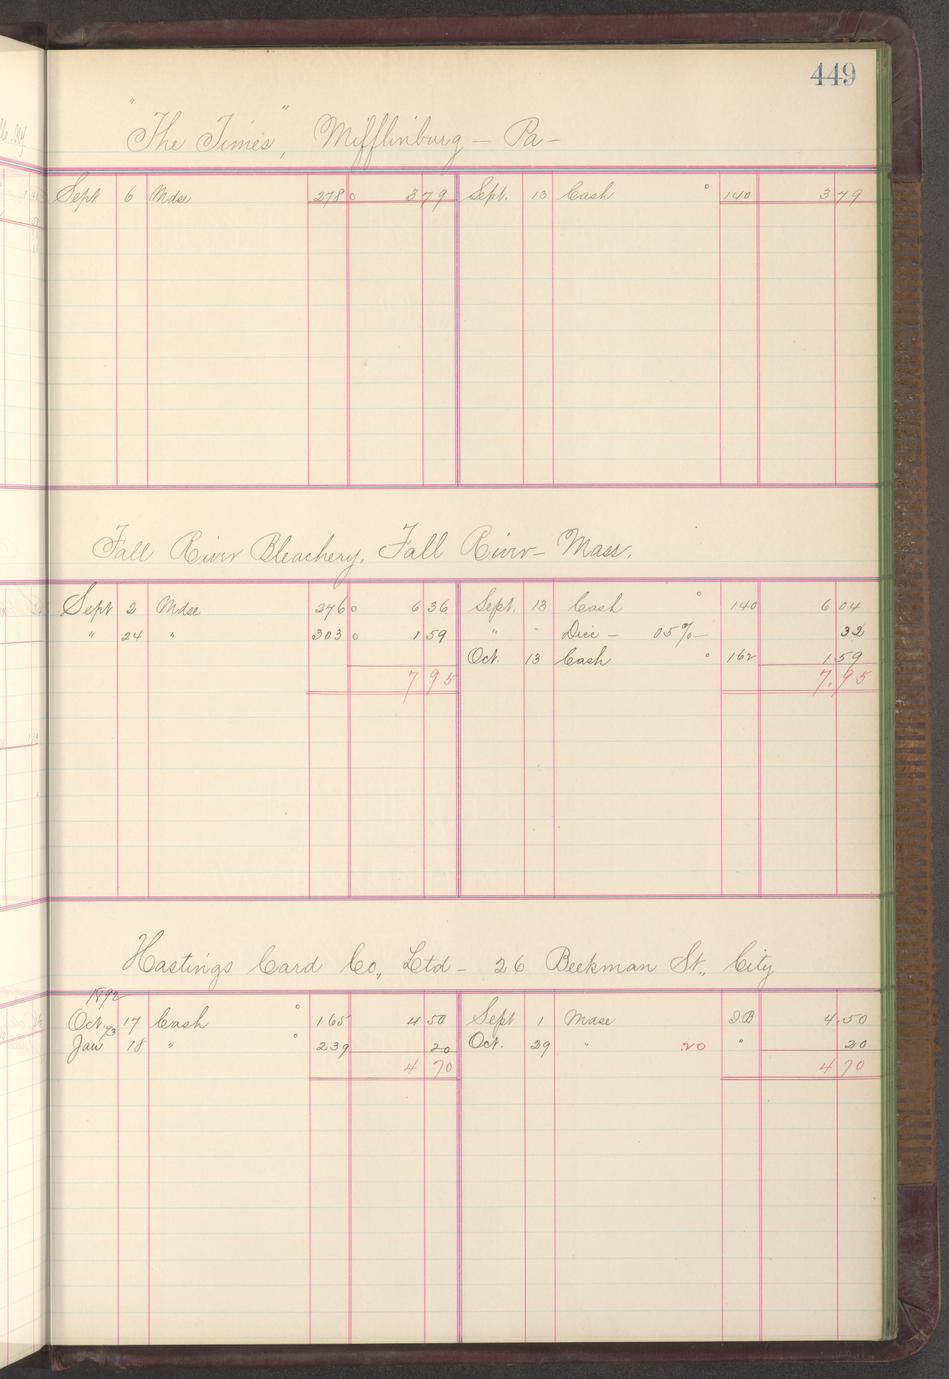 449
"The Times", Mifflinburg — Pa —
Sept 6 Mdse 278 o 3 79 Sept. 13 Cash o 140 3 79
Fall River Bleachery, Fall River — Mass.
Sept 2 Mdse 276 o 6 36 Sept. 13 Cash o 140 6 04
" 24 " 303 o 1 59 " " Disc — 05% — 32
Oct. 13 Cash o 162 1 59
7 95 7.95
Hastings Card Co, Ltd — 26 Beekman St., City
1892
Oct. 17 Cash o 165 4 50 Sept 1 Mdse I B 4.50
Jan 93 18 " o 239 20 Oct. 29 " 20 " 20
4 70 4 70